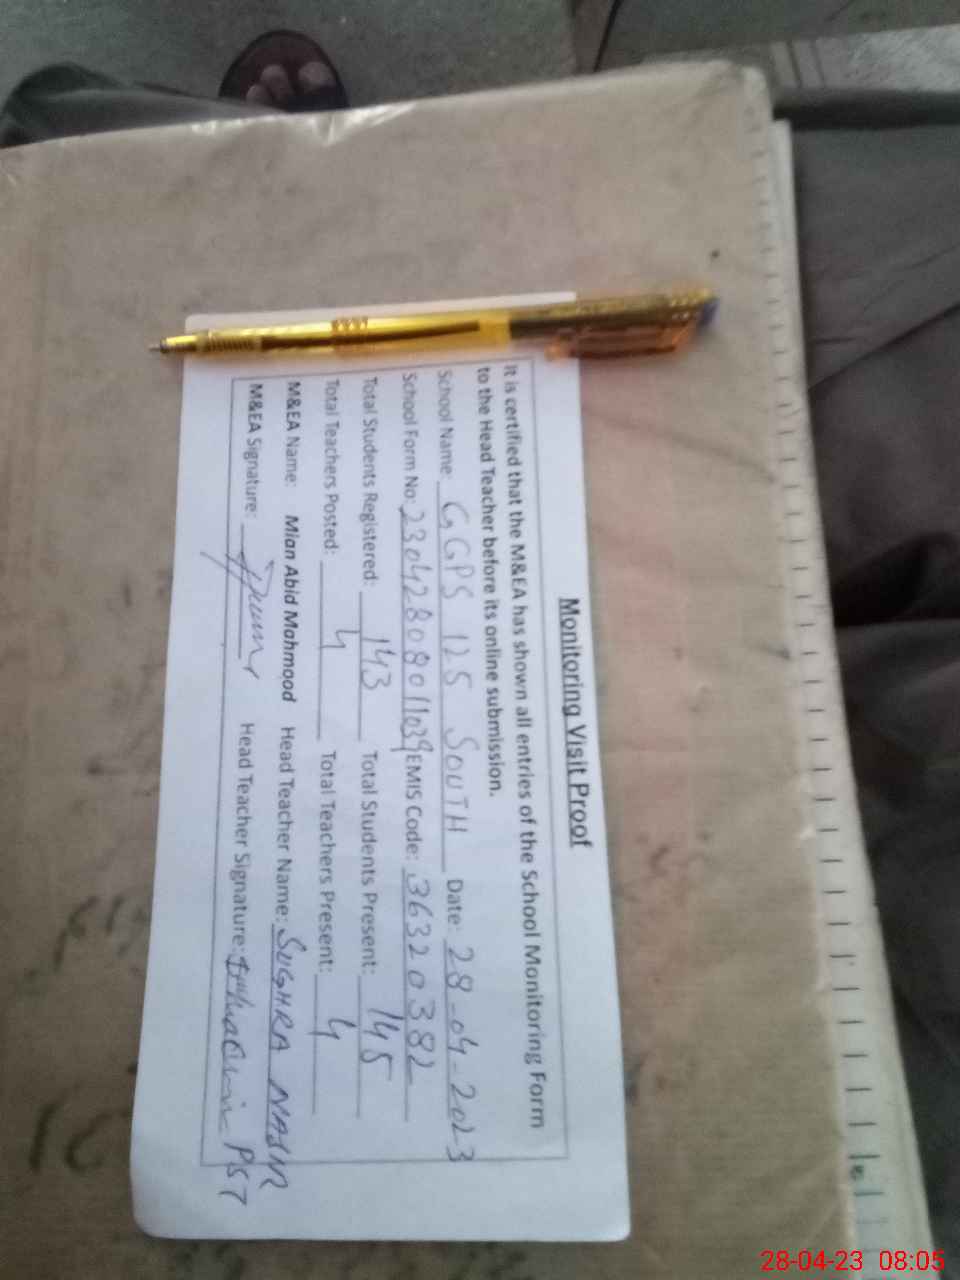 Monitoring Visit Proof
It is certified that the M&EA has shown all entries of the School Monitoring Form
to the Head Teacher before its online submission.
School Name: GGPS 125 SOUTH Date: 28-04-2023
School Form No: 23042808011039 EMIS Code: 36320382
Total Students Registered: 143 Total Students Present: 145
Total Teachers Posted: 4 Total Teachers Present: 4
M&EA Name: Mian Abid Mahmood Head Teacher Name: SUGHRA NASIR
M&EA Signature: Head Teacher Signature: PST
28-04-23 08:05